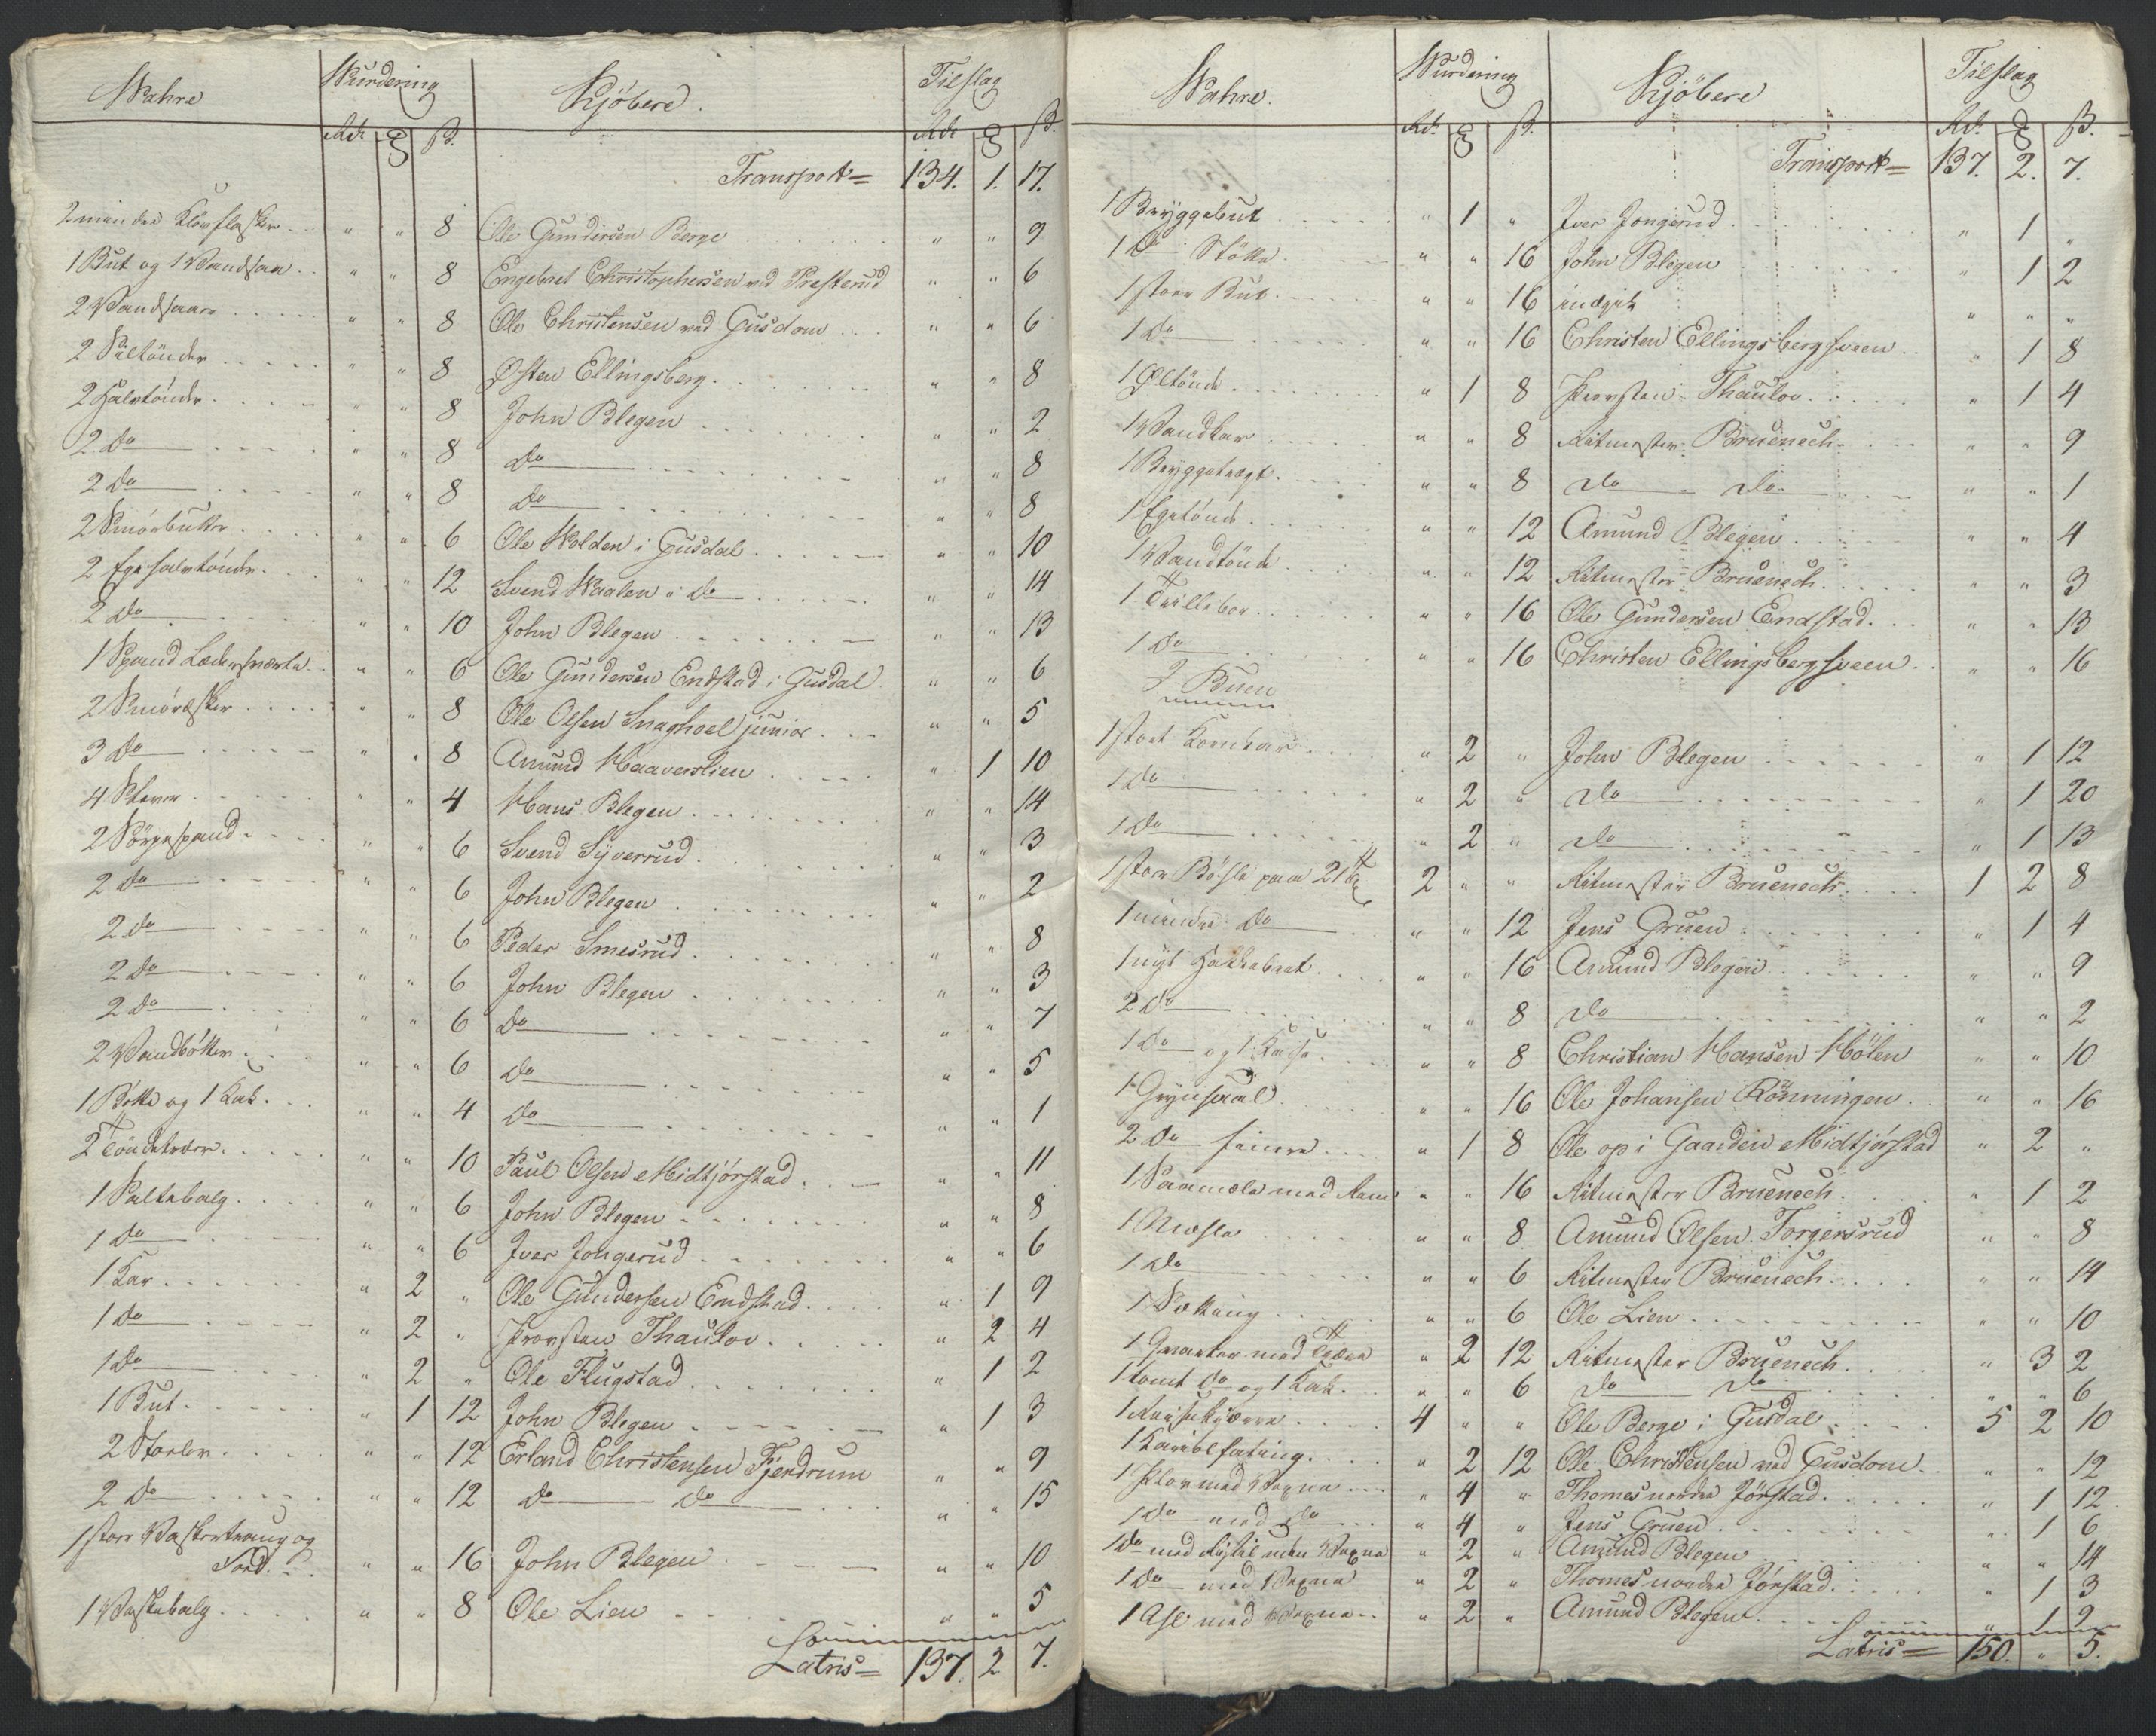 Wahre Wurdering Kjöbere. Tilslag
Rdr ß. Rdr ß.
Transport = 134. 1. 17.
2 mindre Kløvflasker " " 8 Ole Gundersen Berge " " 9
1 But og 1 Vandsaa " " 8 Engebret Christophersen ved Presterud " " 6
2 Vandsaaer " " 8 Ole Christensen ved Gusdom " " 6
2 Sæltönder " " 8 Østen Ellingsberg " " 8
2 Halvtönder " " 8 John Blegen " " 2
2 do " " 8 do " " 8
2 do " " 8 do " " 8
2 Smörbutter " " 6 Ole Wolden i Gusdal " " 10
2 Ege halvtönder " " 12 Svend Waalen i do " " 14
2 do " " 10 John Blegen " " 13
1 Spand Lædersværte " " 6 Ole Gundersen Endstad i Gusdal " " 6
2 Smöræsker " " 8 Ole Olsen Snaghoel junior " " 5
3 do " " 8 Amund Haaverslien " 1 10
4 " " 4 Hans Blegen " " 14
2 Sörpespand " " 6 Svend Syverrud " " 3
2 do " " 6 John Blegen " " 2
2 do " " 6 Peder Smesrud " " 8
2 do " " 6 John Blegen " " 3
2 do " " 6 do " " 7
2 Vandbötter " " 6 do " " 5
1 Bötte og 1 Kak " " 4 do " " 1
2 Töndetræer " " 10 Paul Olsen Midtjørstad " " 11
1 Saltebalg " " 6 John Blegen " " 8
1 do " " 6 Iver Jongerud " " 6
1 Kar " 2 " Ole Gundersen Endstad " 1 9
1 do " 2 " Provsten Thaulov " 2 4
1 do " 2 " Ole Flugstad " 1 2
1 But " 1 12 John Blegen " 1 3
2 Stoeler " " 12 Erland Christensen Fjerdrum " " 9
2 do " " 12 do do " " 15
1 stor Vasketraug og
" " 16 John Blegen " " 10
1 Vaskebalg " " 8 Ole Lien " " 5
Latris = 137. 2 7.
Wahre. Wurdering Kjöbere Tilslag
Rdr. ß. Rdr. ß.
Transport = 137. 2. 7.
1 Bryggebut " 1 " Iver Jongerud " 1 "
1 do Støtte " " 16 John Blegen " 1 2
1 stor But " " 16 " " "
1 do " " 16 Christen Ellingsbergsveen " 1 8
1 Øltönde " 1 8 Provsten Thaulov " 1 4
1 Vandkar " " 8 Ritmester Bruenech " " 9
1 Bryggetragt " " 8 do do " " 1
1 Egetönde " " 12 Amund Blegen " " 4
1 Vandtönde " " 12 Ritmester Bruenech " " 3
1 Trillebør " " 16 Ole Gundersen Endstad " " 13
1 do " " 16 Christen Ellingsbergsveen " " 16
I Buen
1 stort Kornkar " 2 " John Blegen " 1 12
1 do " 2 " do " 1 20
1 do " 2 " do " 1 13
1 stor Bösle paa 21 ℔ 2 " " Ritmester Bruenech 1 2 8
1 mindre do " " 12 Jens Gruen " 1 4
1 nyt Hakkebræt " " 16 Amund Blegen " " 9
2 do " " 8 do " " 2
1 do og 1 " " 8 Christian Hansen Hølen " " 10
1 Grynsaal " " 16 Ole Johansen Rönningen " " 16
2 do finere " 1 8 Ole op i Gaarden Midtjørstad " 2 "
1 med " " 16 Ritmester Bruenech " 1 2
1 " " 8 Amund Olsen Torgersrud " " 8
1 do " " 6 Ritmester Bruenech " " 14
1 " " 6 Ole Lien " " 10
1 med " 2 12 Ritmester Bruenech " 3 2
1 tomt do og 1 Kak " " 6 do do " " 6
1 4 " " Ole Berge i Gusdal 5 2 10
1 " 2 12 Ole Christensen ved Gusdom " " 12
1 Plov med " 4 " Thomes nordre Jørstad " 1 12
1 do med do " 4 " Jens Gruen " 1 6
1 do med uden " 2 " Amund Blegen " " 14
1 do med " 2 " Thomes nordre Jørstad " 1 3
1 med " 2 " Amund Blegen " 1 2
Latris = 150. " 5.